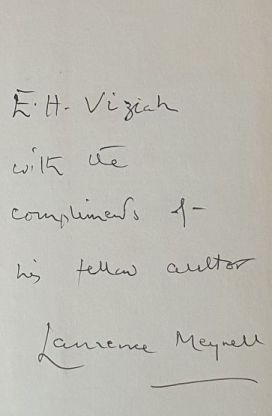 E.H. Viziak
with the
compliments of
his fellow author
Laurence Meynell